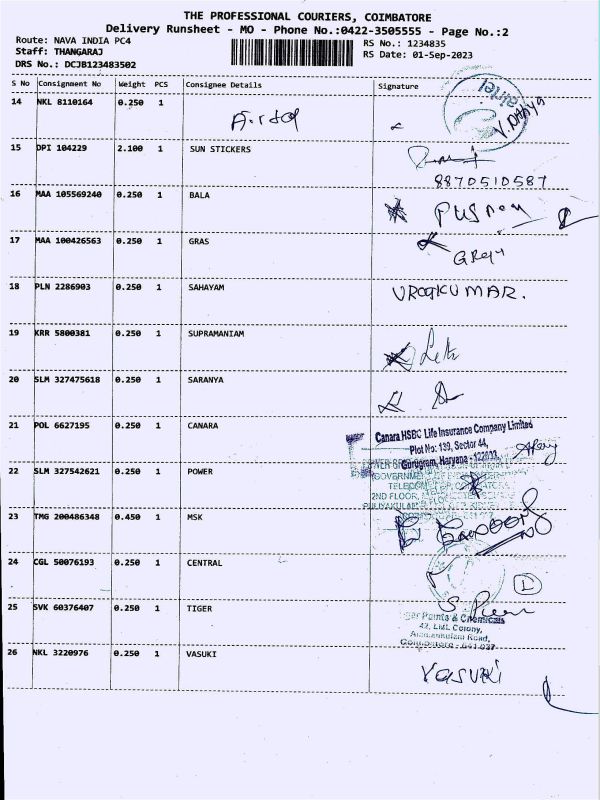 THE PROFESSIONAL COURIERS, COIMBATORE
Delivery Runsheet - MO - Phone No.:0422-3505555 - Page No.:2
Route: NAVA INDIA PC4
RS No.: 1234835
Staff: THANGARAJ
RS Date: 01-Sep-2023
DRS No.: DCJB123483502
S No Consignment No Weight PCS Consignee Details Signature
14 NKL 8110164 0.250 1 Airtel
airtel
15 DPI 104229 2.100 1 SUN STICKERS
8870510587
16 MAA 105569240 0.250 1 BALA
17 MAA 100426563 0.250 1 GRAS
18 PLN 2286903 0.250 1 SAHAYAM
19 KRR 5800381 0.250 1 SUPRAMANIAM
20 SLM 327475618 0.250 1 SARANYA
21 POL 6627195 0.250 1 CANARA
Canara HSBC Life Insurance Company Limited
Plot No: 139, Sector 44,
Gurugram, Haryana - 122003,
22 SLM 327542621 0.250 1 POWER
2ND FLOOR,
23 TMG 200486348 0.450 1 MSK
24 CGL 50076193 0.250 1 CENTRAL
25 SVK 60376407 0.250 1 TIGER
Paints & Chemicals
42, LML Colony,
Road,
26 NKL 3220976 0.250 1 VASUKI
Vasuki